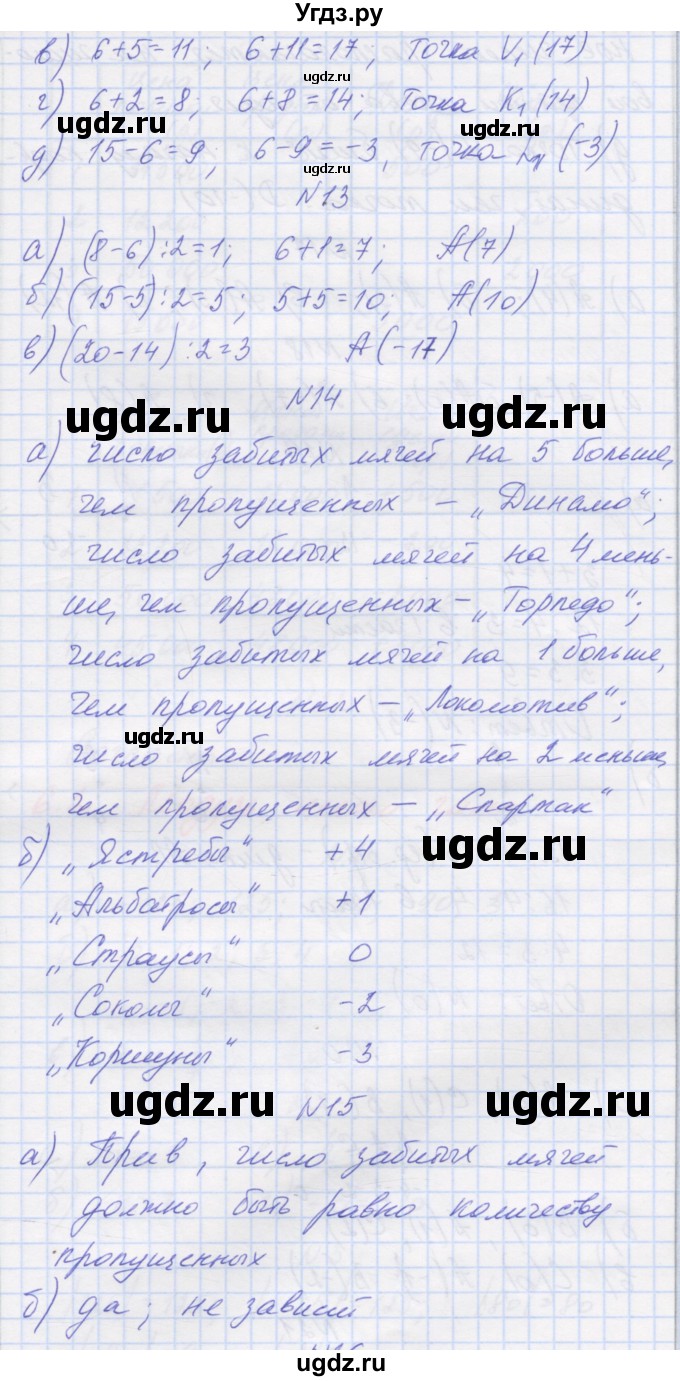 Угдз.ру
в) 6+5=11; 6+11=17, точка V₁(17)
ugdz.ru
г) 6+2=8; 6+8=14; точка K₁(14)
ugdz.ru ugdz.ru
д) 15-6=9, 6-9=-3, точка (-3)
N13
а) (8-6):2=1; 6+1=7; A(7)
б) (15-5):2=5; 5+5=10; A(10)
в) (20-14):2=3 A(-17)
N14
ugdz.ru ugdz.ru
а) число забитых мячей на 5 больше,
чем пропущенных – „Динамо“;
число забитых мячей на 4 мень-
ше, чем пропущенных – „Торпедо“;
число забитых мячей на 1 больше,
чем пропущенных – „Локомотив“;
ugdz.ru
число забитых мячей на 2 меньше,
чем пропущенных – „Спартак“
б) „Ястребы“ +4
ugdz.ru
„Альбатросы“ +1
„Страусы“ 0
„Соколы“ -2
„Коршуны“ -3
ugdz.ru N15 ugdz.ru
а) Прав, число забитых мячей
должно быть равно количеству
пропущенных
б) да; не зависит
ugdz.ru